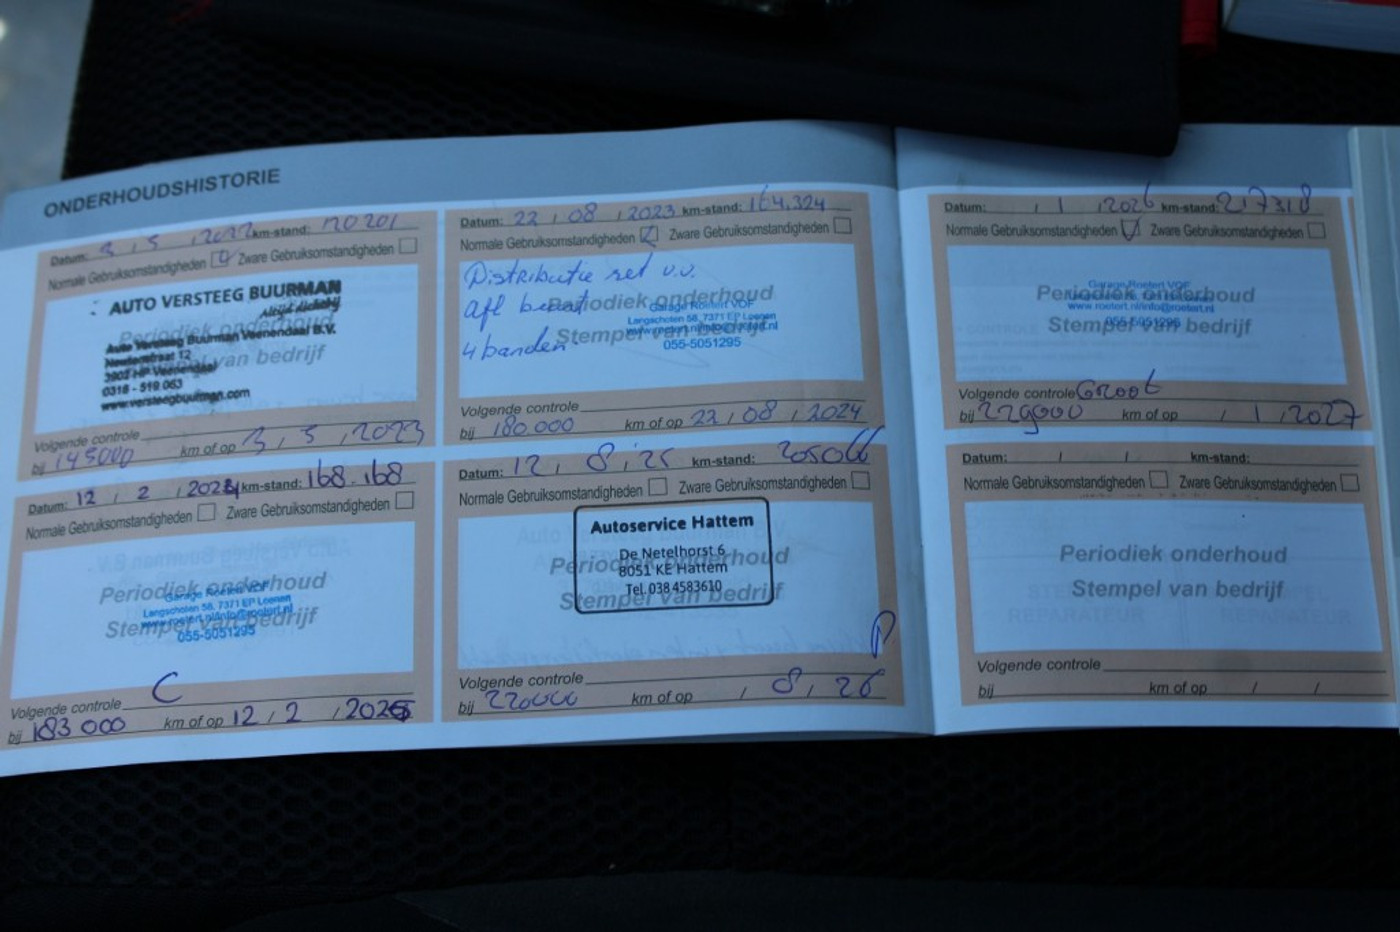 ONDERHOUDSHISTORIE
Datum: 3 / 5 / 2022 km-stand: 120201
Normale Gebruiksomstandigheden Zware Gebruiksomstandigheden
AUTO VERSTEEG BUURMAN
Periodiek onderhoud
Auto Versteeg Buurman Veenendaal B.V.
Stempel van bedrijf
3902 HP Veenendaal
0318 - 519 063
www.versteegbuurman.com
Volgende controle
bij 145000 km of op 3 / 5 / 2023
Datum: 22 / 08 / 2023 km-stand: 164.324
Normale Gebruiksomstandigheden Zware Gebruiksomstandigheden
Distributie set v.v.
4 banden
Periodiek onderhoud
Stempel van bedrijf
Garage Roetert VOF
Langscholen 58, 7371 EP Loenen
www.roetert.nl/info@roetert.nl
055-5051295
Volgende controle
bij 180.000 km of op 22 / 08 / 2024
Datum: 12 / 2 / 2024 km-stand: 168.168
Normale Gebruiksomstandigheden Zware Gebruiksomstandigheden
Periodiek onderhoud
Stempel van bedrijf
Garage Roetert VOF
Langscholen 58, 7371 EP Loenen
www.roetert.nl/info@roetert.nl
055-5051295
C
Volgende controle
bij 183 000 km of op 12 / 2 / 2025
Datum: 12 / 8 / 25 km-stand: 205066
Normale Gebruiksomstandigheden Zware Gebruiksomstandigheden
Autoservice Hattem
De Netelhorst 6
8051 KE Hattem
Tel. 038 4583610
Periodiek onderhoud
Stempel van bedrijf
P
Volgende controle
bij 220000 km of op / 8 / 26
Datum: / 1 / 2026 km-stand: 217318
Normale Gebruiksomstandigheden Zware Gebruiksomstandigheden
Periodiek onderhoud
Stempel van bedrijf
Garage Roetert VOF
www.roetert.nl/info@roetert.nl
055-5051295
Volgende controle Groot
bij 229000 km of op / 1 / 2027
Datum: / / km-stand:
Normale Gebruiksomstandigheden Zware Gebruiksomstandigheden
Periodiek onderhoud
Stempel van bedrijf
Volgende controle
bij km of op / /